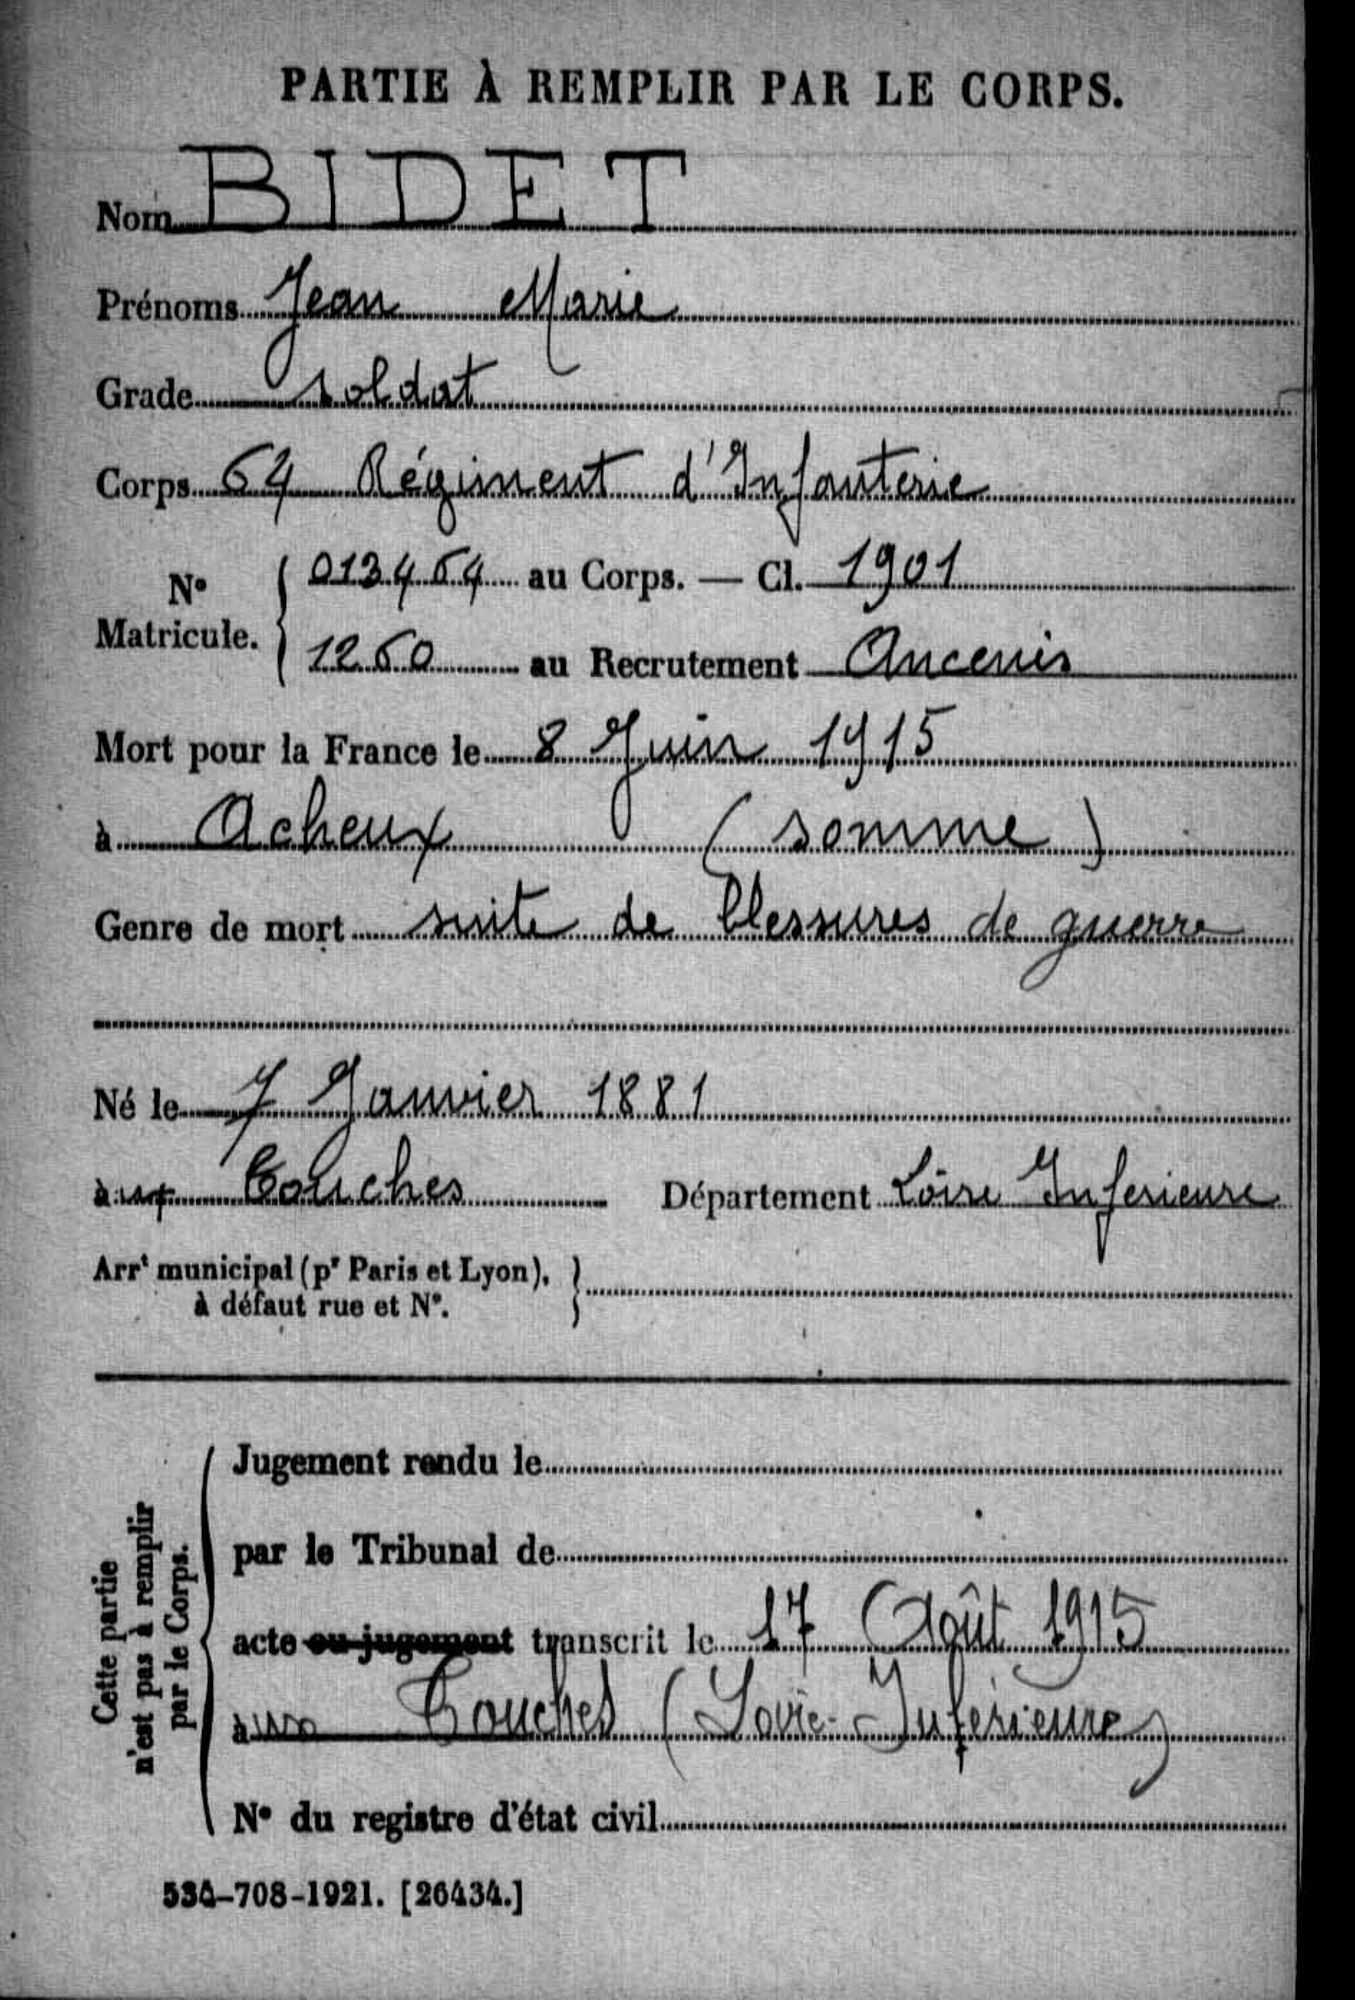 PARTIE À REMPLIR PAR LE CORPS.
Nom BIDET
Prénoms Jean Marie
Grade soldat
Corps 64 Régiment d'Infanterie
N° Matricule. { 013464 au Corps. — Cl. 1901
1260 au Recrutement Ancenis
Mort pour la France le 8 Juin 1915
à Acheux (somme)
Genre de mort suite de blessures de guerre
Né le 7 Janvier 1881
aux Touches Département Loire Inferieure
Arrt municipal (pr Paris et Lyon), }
à défaut rue et N°.
Cette partie
n'est pas à remplir
par le Corps.
Jugement rendu le
par le Tribunal de
acte ou jugement transcrit le 17 Août 1915
aux Touches (Loire-Inférieure)
N° du registre d'état civil
534-708-1921. [26434.]